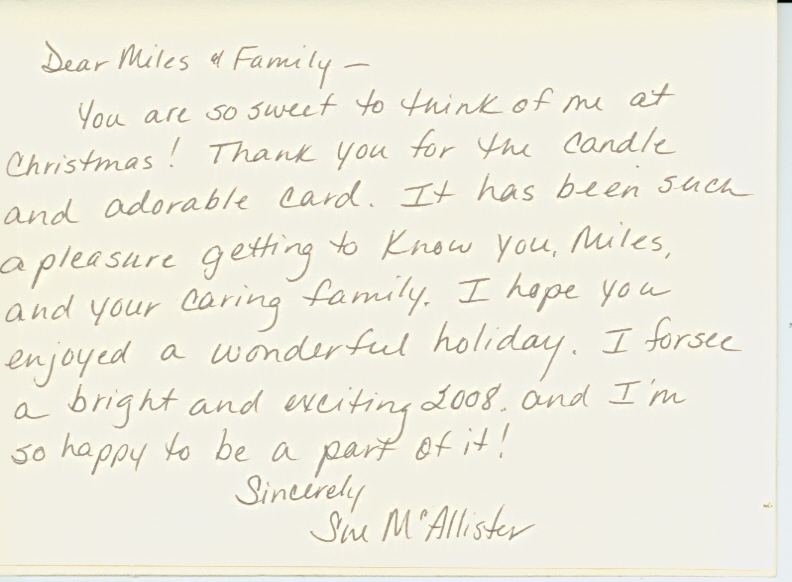 Dear Miles & Family —
You are so sweet to think of me at
Christmas! Thank you for the candle
and adorable card. It has been such
a pleasure getting to know you, Miles,
and your caring family. I hope you
enjoyed a wonderful holiday. I forsee
a bright and exciting 2008, and I'm
so happy to be a part of it!
Sincerely
Sue McAllister